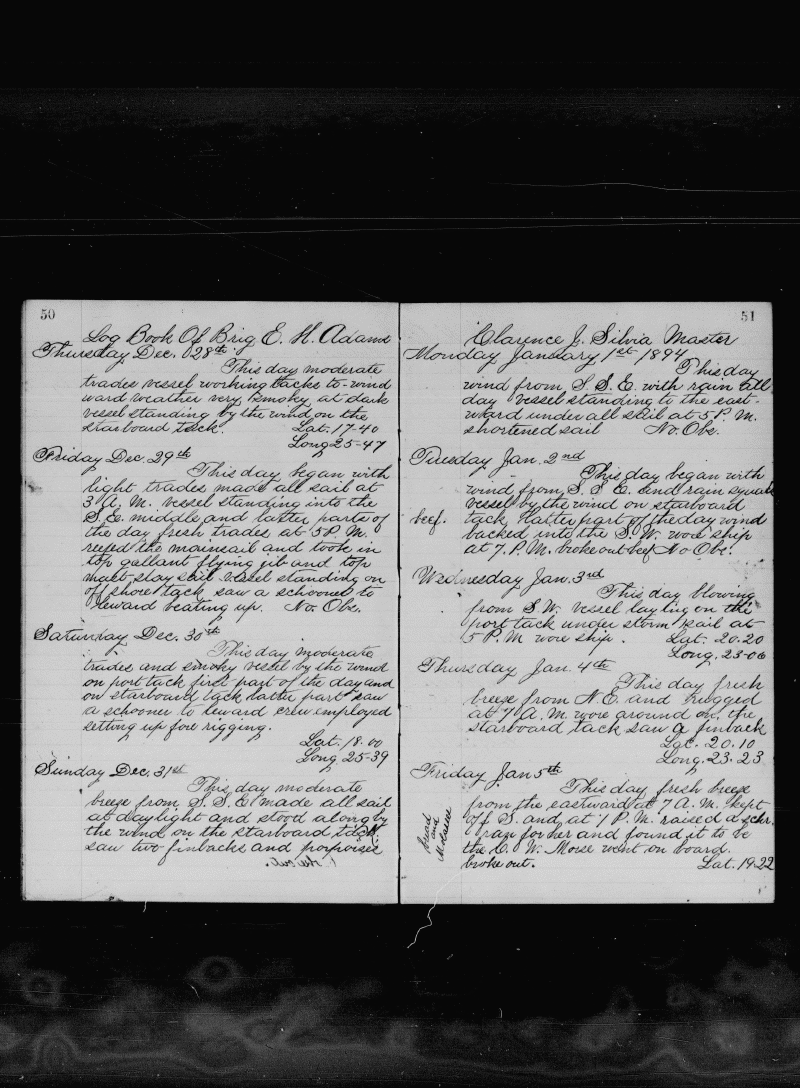 50
Log Book Of Brig E. H. Adams
Thursday Dec. 28th
This day moderate
trades vessel working tacks to-wind
ward weather very smoky at dark
vessel standing by the wind on the
starboard tack. Lat. 17-40
Long 25-47
Friday Dec. 29th
This day began with
light trades made all sail at
3 A. M. vessel standing into the
S. E. middle and latter parts of
the day fresh trades at 5 P. M.
reefed the mainsail and took in
top gallant flying jib and top
mast stay sail vessel standing on
off shore tack saw a schooner to
leward beating up. No Obs.
Saturday Dec. 30th
This day moderate
trades and smoky vessel by the wind
on port tack first part of the day and
on starboard tack latter part saw
a schooner to leward crew employed
setting up fore rigging.
Lat. 18.00
Long 25-39
Sunday Dec. 31st
This day moderate
breeze from S. S. E. made all sail
at daylight and stood along by
the wind on the starboard tack
saw two finbacks and porpoises
51
Clarence J. Silvia Master
Monday January 1st 1894
This day
wind from S. S. E. with rain all
day vessel standing to the east-
ward under all sail at 5 P. M.
shortened sail No. Obs.
Tuesday Jan. 2nd
This day began with
wind from S. S. E. and rain squalls
vessel by the wind on starboard
beef. tack latter part of the day wind
backed into the S. W. wore ship
at 7. P. M. broke out beef No Obs.
Wednesday Jan. 3rd
This day blowing
from S. W. vessel laying on the
port tack under storm sail at
5 P. M. wore ship. Lat. 20.20
Long. 23-06
Thursday Jan. 4th
This day fresh
breeze from N. E. and rugged
at 7 A. M. wore around on the
starboard tack saw a finback
Lat. 20.10
Long. 23.23
Friday Jan 5th
This day fresh breeze
from the eastward at 7 A. M. kept
off S. and at 1 P. M. raised a schr.
ran for her and found it to be
the E. W. Morse went on board.
broke out. Lat. 19-22
bread
and
Molasses